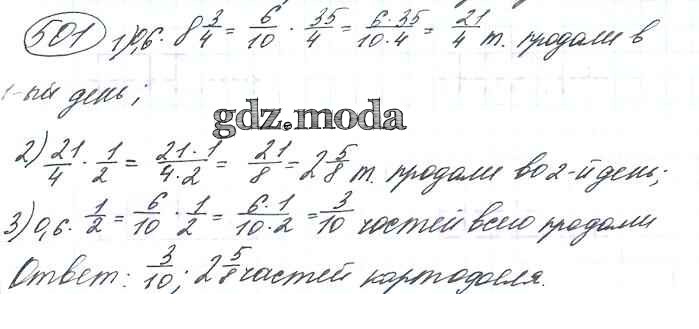 501 1) 0,6 · 8 3/4 = 6/10 · 35/4 = 6·35/10·4 = 21/4 т. продали в
1-ый день;
gdz.moda
2) 21/4 · 1/2 = 21·1/4·2 = 21/8 = 2 5/8 т. продали во 2-й день;
3) 0,6 · 1/2 = 6/10 · 1/2 = 6·1/10·2 = 3/10 частей всего продали
Ответ: 3/10; 2 5/8 частей картофеля.